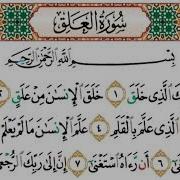 سُورَةُ العَلَق
بِسْمِ ٱللَّهِ ٱلرَّحْمَٰنِ ٱلرَّحِيمِ
كَ ٱلَّذِى خَلَقَ ١ خَلَقَ ٱلْإِنسَٰنَ مِنْ عَلَقٍ
ٱلَّذِى عَلَّمَ بِٱلْقَلَمِ ٤ عَلَّمَ ٱلْإِنسَٰنَ مَا لَمْ يَعْلَمْ
٦ أَن رَّءَاهُ ٱسْتَغْنَىٰٓ ٧ إِنَّ إِلَىٰ رَبِّكَ ٱلرُّجْعَىٰٓ